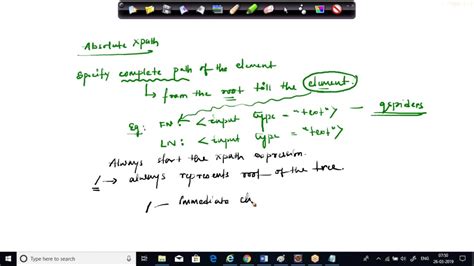 Absolute xpath
Specify complete path of the element
↳ from the root till the element.
Eg: FN: < input type = "text"> — qspiders
LN: < input type = "text">
Always start the xpath expression.
/ → always represents root of the tree.
/ — Immediate ch
Type here to search
ENG
07:50
26-03-2019